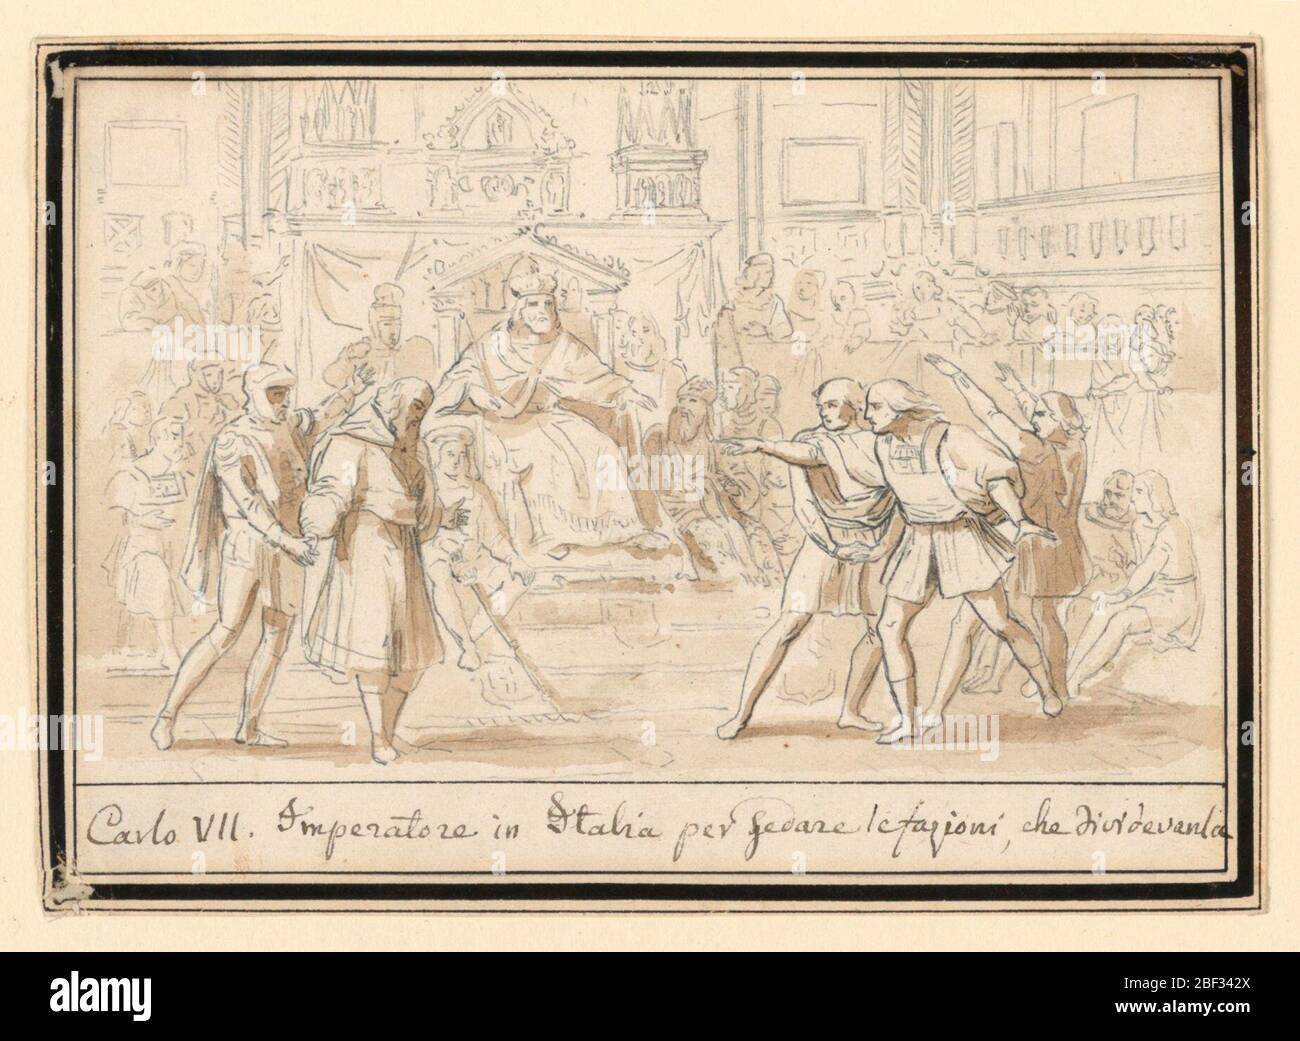 Carlo VII. Imperatore in Italia per sedare le fazioni, che dividevanla
alamy
Image ID: 2BF342X
www.alamy.com